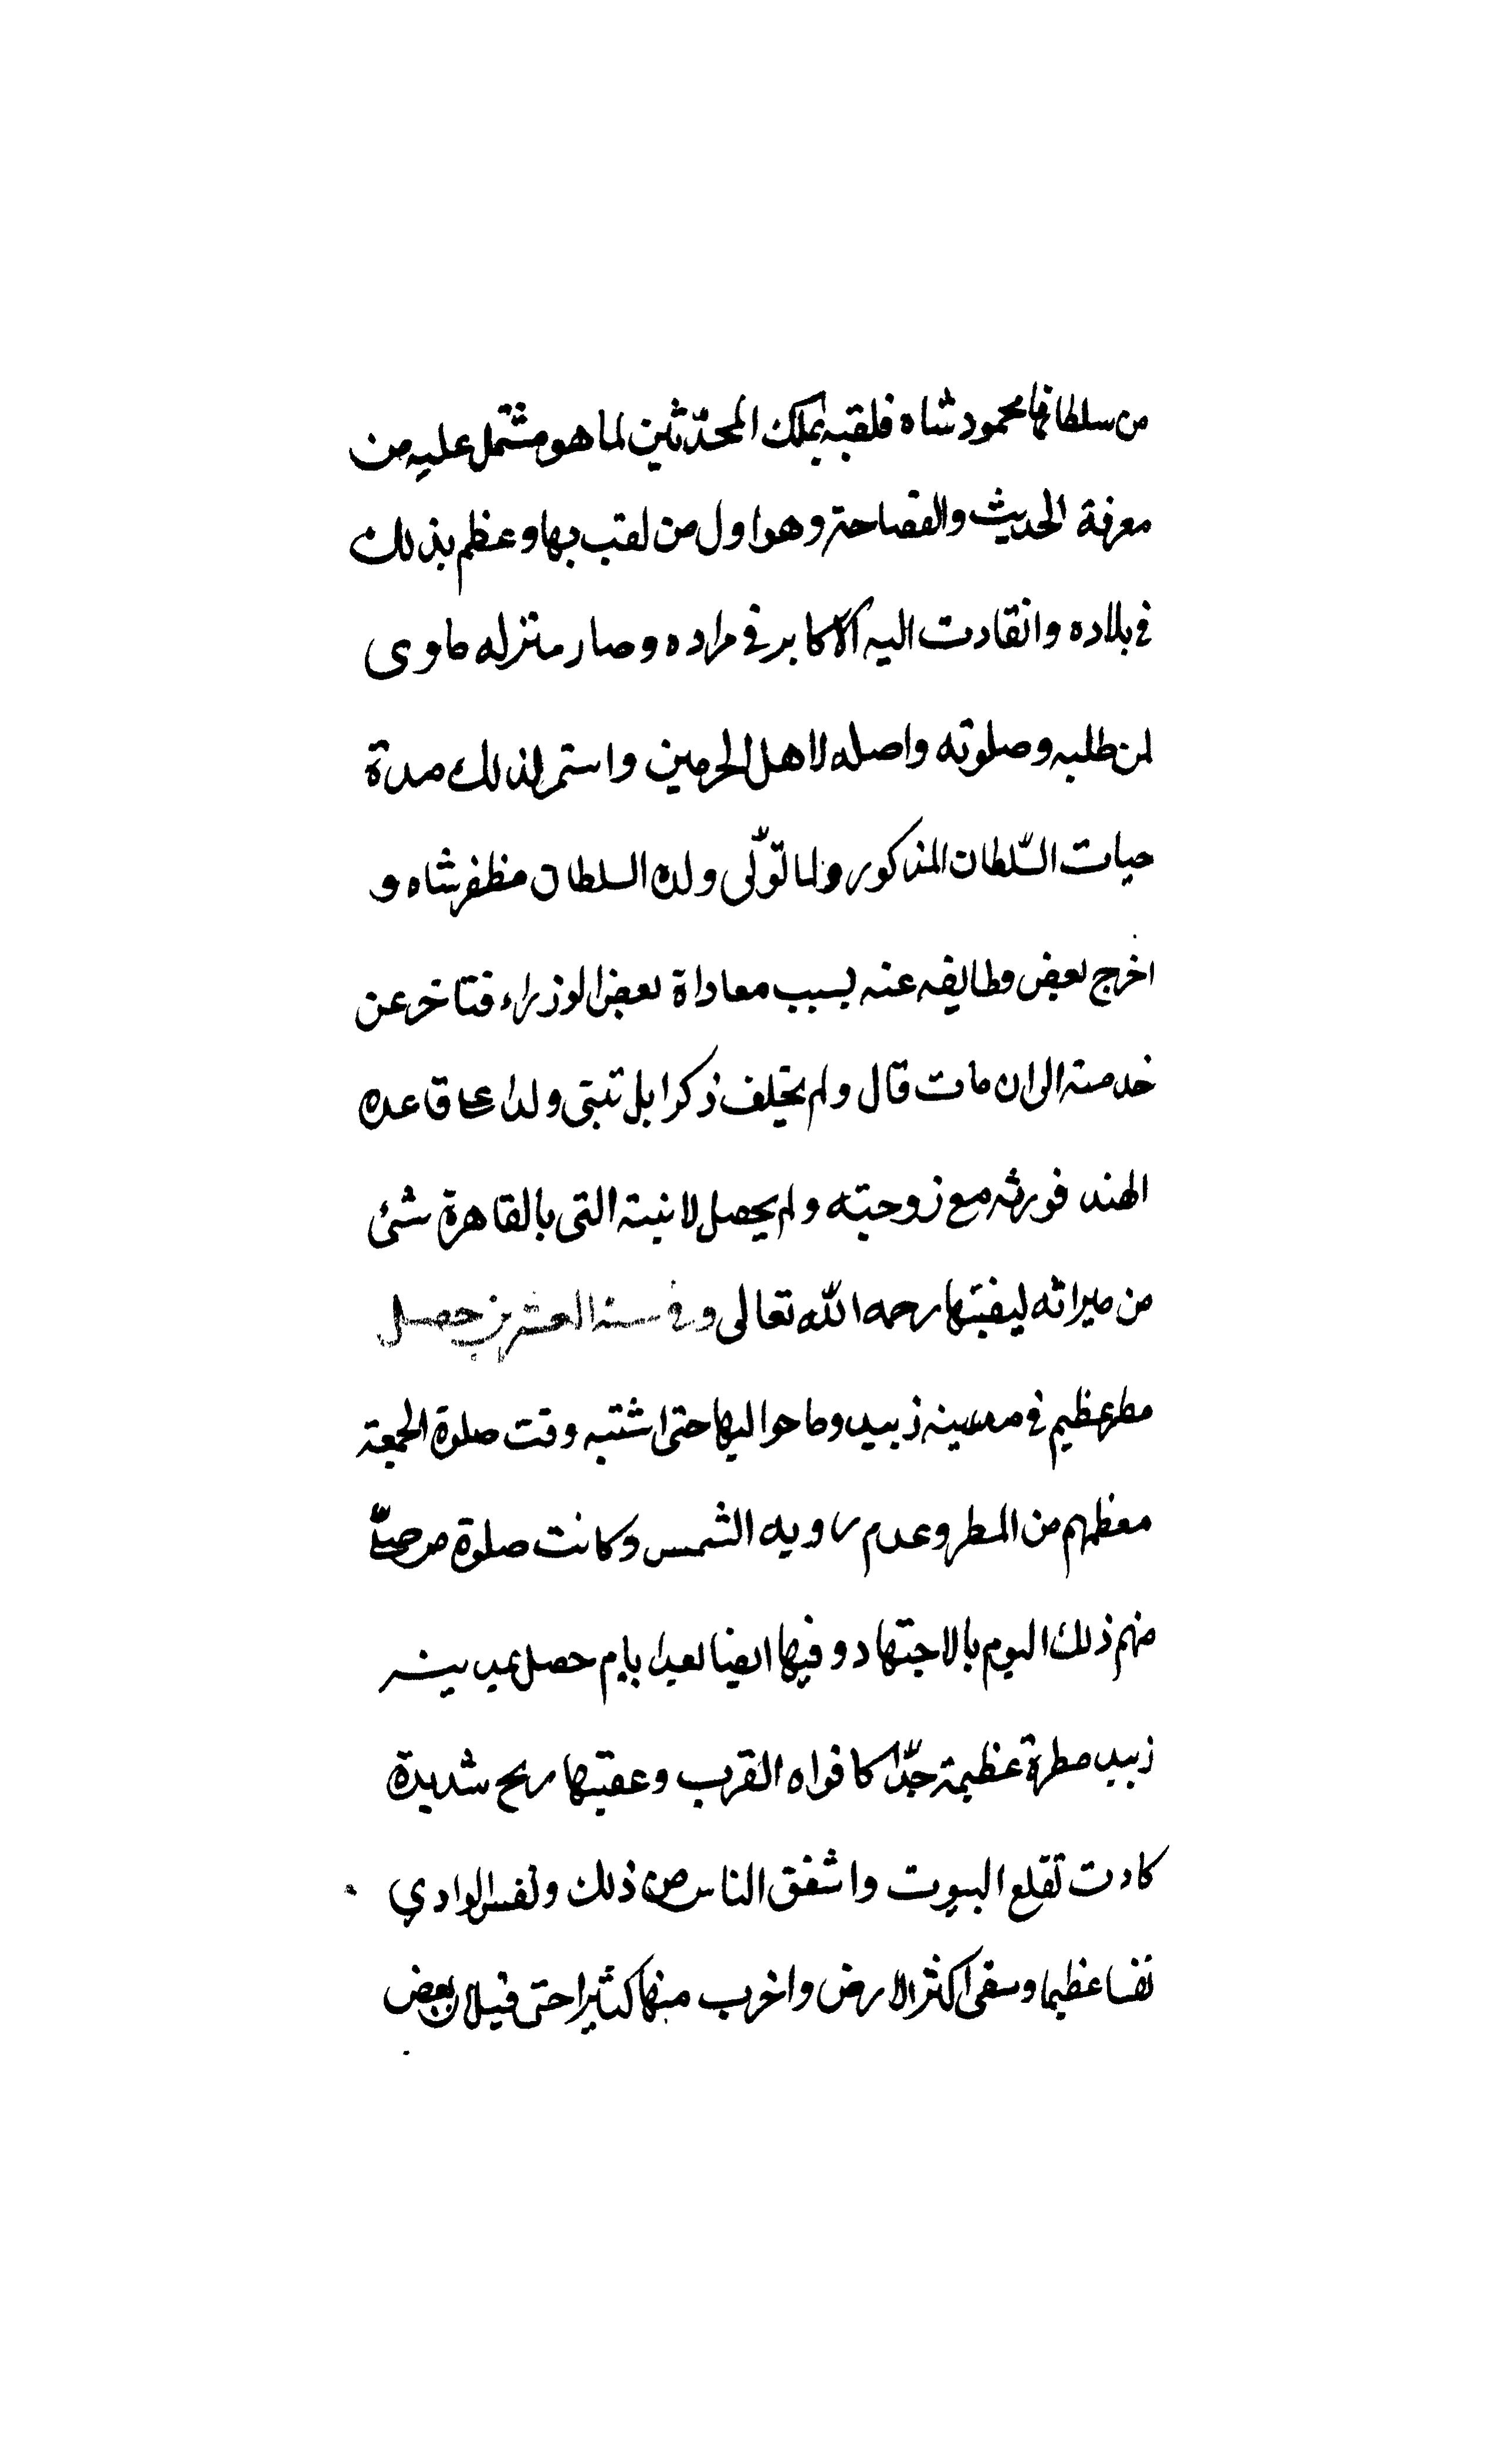 من سلطانها محمود شاه فلقبه بملك المحدّثين لما هو مشتمل عليه من
معرفة الحديث والفصاحة وهو اول من لقب بها وعظم بذلك
في بلاده وانقادت اليه الاكابر في مراده وصار منزله ماوى
لمن طلبه وصلوته واصله لاهل الحرمين واستمر لذلك مدة
حيات السّلطان المذكور ولما تولّى ولده السلطان مظفر شاه و
اخرج بعض وظايفه عنه بسبب معاداة بعض الوزراء فتاخر عن
خدمته الى ان مات قال ولم يخلف ذكرا بل تبنى ولدا على قاعده
الهند فورثه مع زوجته ولم يحصل لابنته التي بالقاهرة شئ
من ميراثه ليغبتها رحمه الله تعالى وفي سنة العشرين حصل
مطر عظيم في مدينه زبيد وما حواليها حتى اشتبه وقت صلوة الجمعة
معظمهم من المطر وعدم راويه الشمس وكانت صلوة من صلّى
منهم ذلك اليوم بالاجتهاد وفيها ايضا بعد ايام حصل بمدينة
زبيد مطرة عظيمة جدّا كافواه القرب وعقبتها ريح شديدة
كادت تقلع البيوت واشفق الناس من ذلك ونفس الوادي
نفسا عظيما وسقى اكثر الارض واخرب منها كثيرا حتى قيل ان بعض